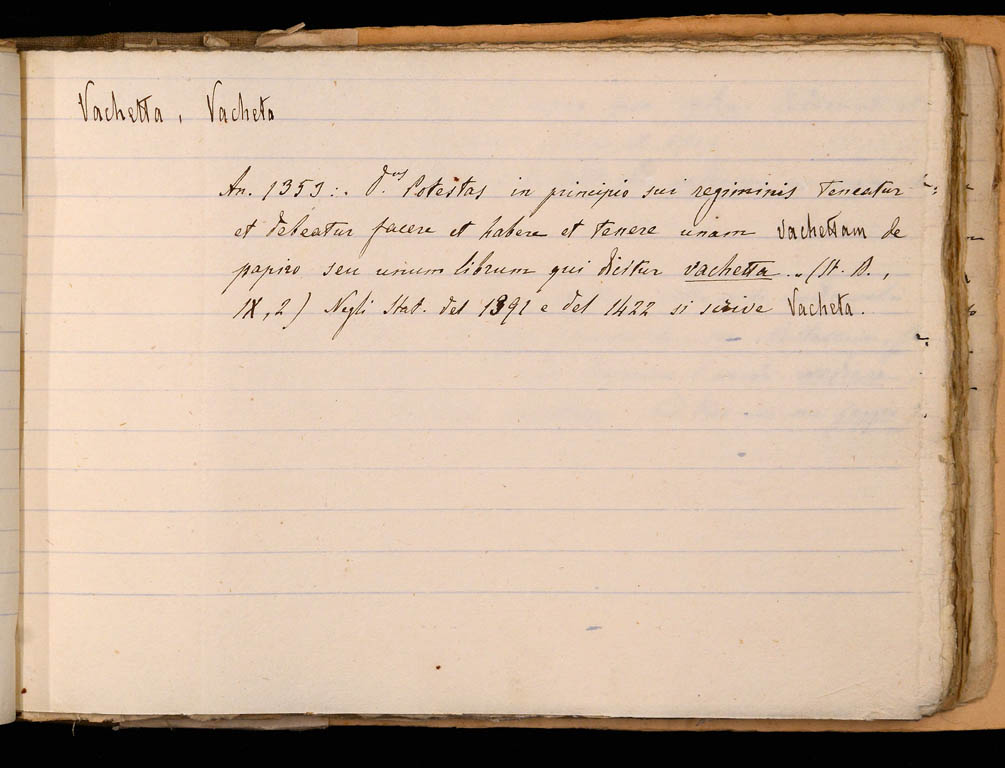 Vachetta, Vacheta
An. 1353: . d.us Potestas in principio sui regiminis teneatur
et debeatur facere et habere et tenere unam vachettam de
papiro seu unum librum qui dicitur vachetta .. (St. B.,
IX, 2) Negli Stat. del 1391 e del 1422 si scrive Vacheta.